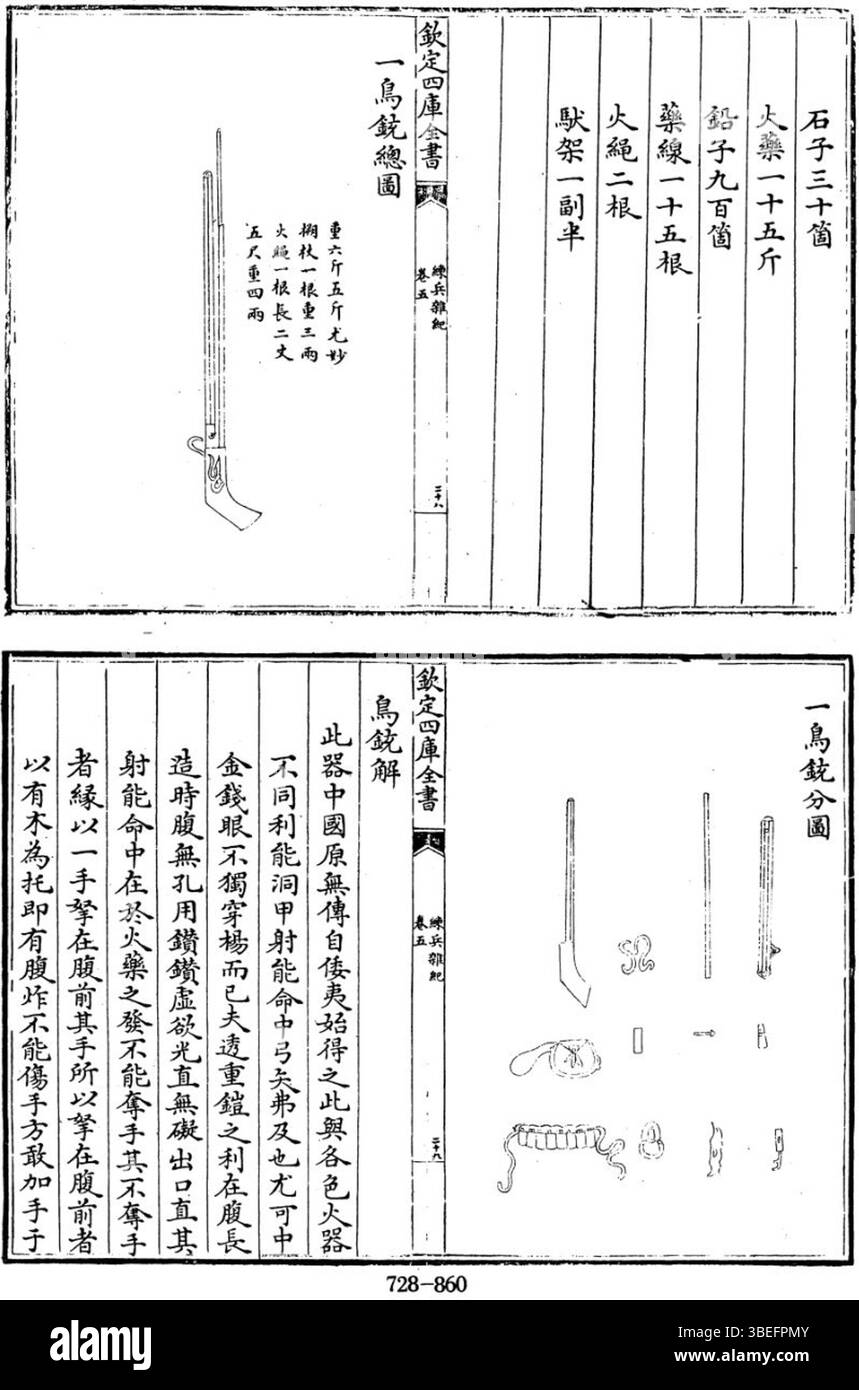 石子三十箇
火藥一十五斤
鉛子九百箇
藥線一十五根
火繩二根
馱架一副半
欽定四庫全書
練兵雜紀
卷五
二十八
一鳥銃總圖
重六斤五斤尤妙
搠杖一根重三兩
火繩一根長二丈
五尺重四兩
一鳥銃分圖
欽定四庫全書
練兵雜紀
卷五
二十九
鳥銃解
此器中國原無傳自倭夷始得之此與各色火器
不同利能洞甲射能命中弓矢弗及也尤可中
金錢眼不獨穿楊而已夫透重鎧之利在腹長
造時腹無孔用鑽鑽虛欲光直無礙出口直其
射能命中在於火藥之發不能奪手其不奪手
者緣以一手拏在腹前其手所以拏在腹前者
以有木為托即有腹炸不能傷手方敢加手于
728-860
alamy
Image ID: 3BEFPMY
www.alamy.com